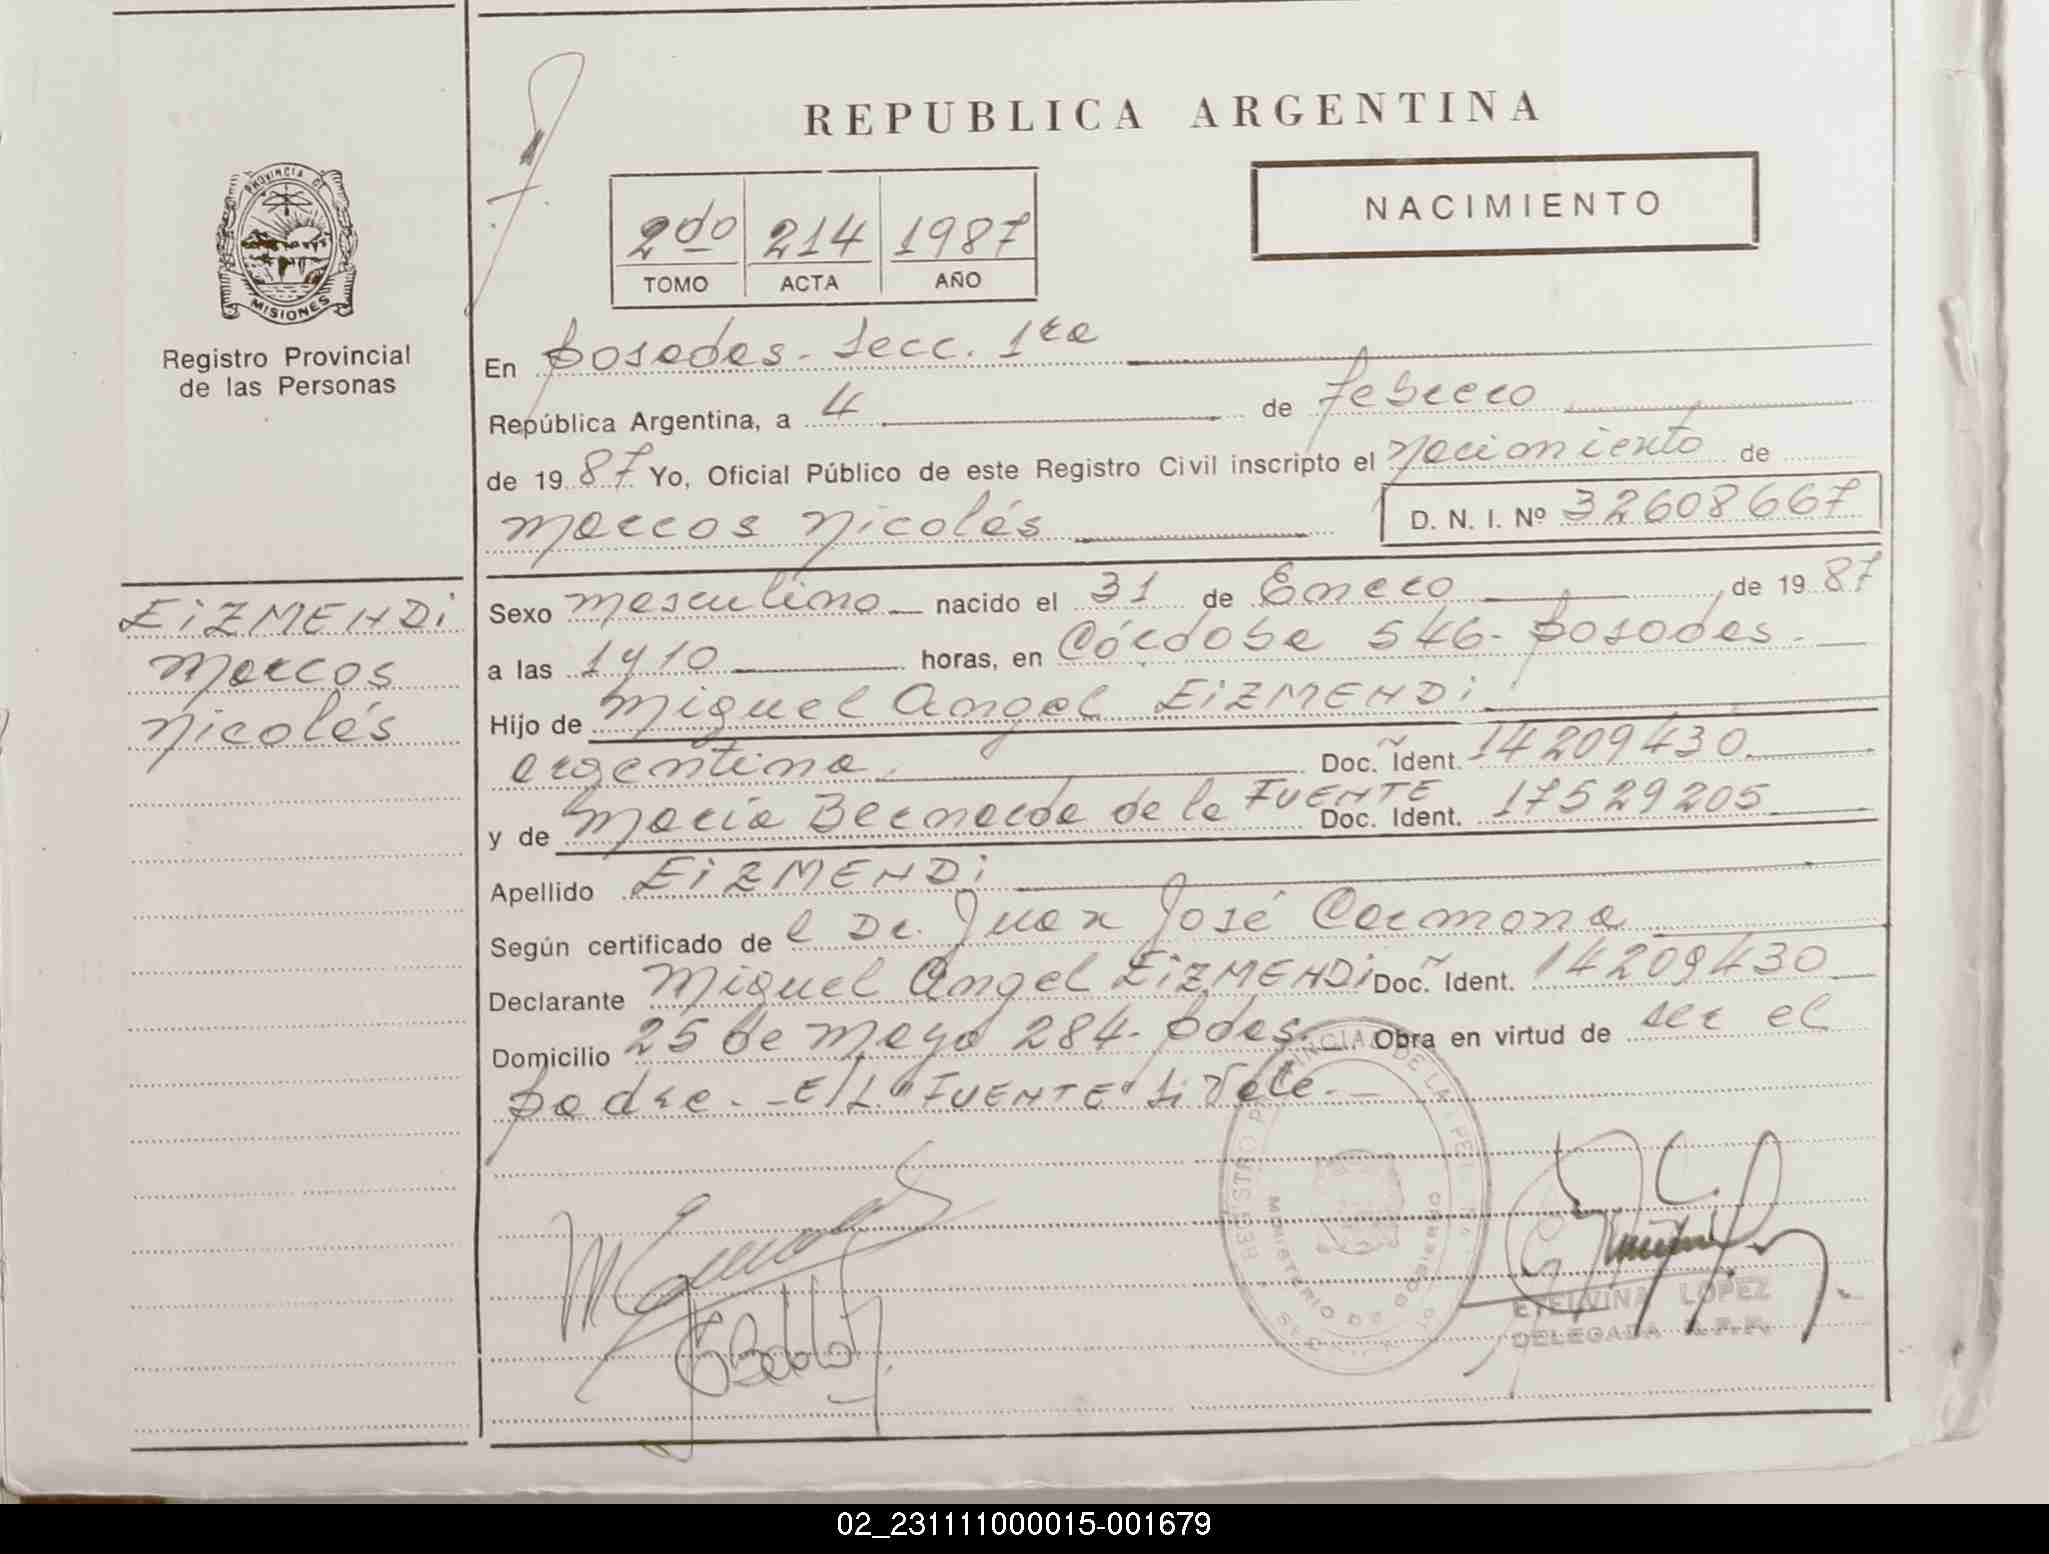 REPUBLICA ARGENTINA
NACIMIENTO
2do 214 1987
TOMO ACTA AÑO
PROVINCIA DE
MISIONES
Registro Provincial
de las Personas
EIZMENDI
Marcos
Nicolás
En Posadas - Secc. 1ra
República Argentina, a 4 de febrero
de 1987 Yo, Oficial Público de este Registro Civil inscripto el nacimiento de
Marcos Nicolás D. N. I. Nº 32608667
Sexo masculino nacido el 31 de Enero de 1987
a las 1910 horas, en Córdoba 546 - Posadas.
Hijo de Miguel Angel EIZMENDI
argentina Doc. Ident. 14209430
y de María Bernarda de la FUENTE Doc. Ident. 17529205
Apellido EIZMENDI
Según certificado de l Dr. Juan José Carmona
Declarante Miguel Angel EIZMENDI Doc. Ident. 14209430
Domicilio 25 de Mayo 284 - Pdas. Obra en virtud de ser el
padre. - E/L "FUENTE" Si Vale. -
MINISTERIO DE GOBIERNO
ETELVINA LOPEZ
DELEGADA R.P.P.
02_231111000015-001679